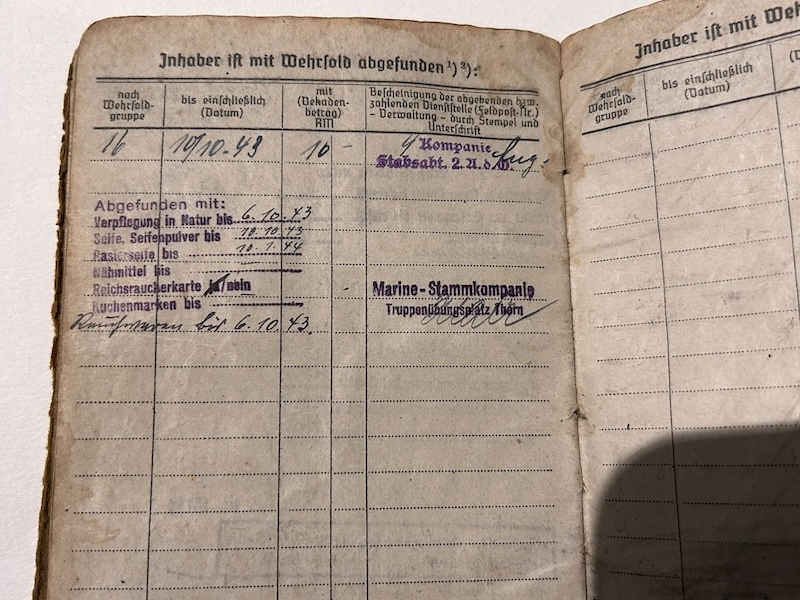 Inhaber ist mit Wehrsold abgefunden ¹) ²):
nach
Wehrsold-
gruppe
bis einschließlich
(Datum)
mit
(Dekaden-
betrag)
RM
Bescheinigung der abgebenden bzw.
zahlenden Dienststelle (Feldpost-Nr.)
– Verwaltung – durch Stempel und
Unterschrift
16
10/10.43
10 –
Kompanie
Stabsabt. 2. A. d. O.
Abgefunden mit:
Verpflegung in Natur bis 6.10.43
Seife, Seifenpulver bis 10.10.43
Rasierseife bis 10.1.44
Nähmittel bis
Reichsraucherkarte ja/nein
Kuchenmarken bis
Rauchwaren bis 6.10.43.
Marine-Stammkompanie
Truppenübungsplatz Thorn
Inhaber ist mit Weh
nach
Wehrsold-
gruppe
bis einschließlich
(Datum)